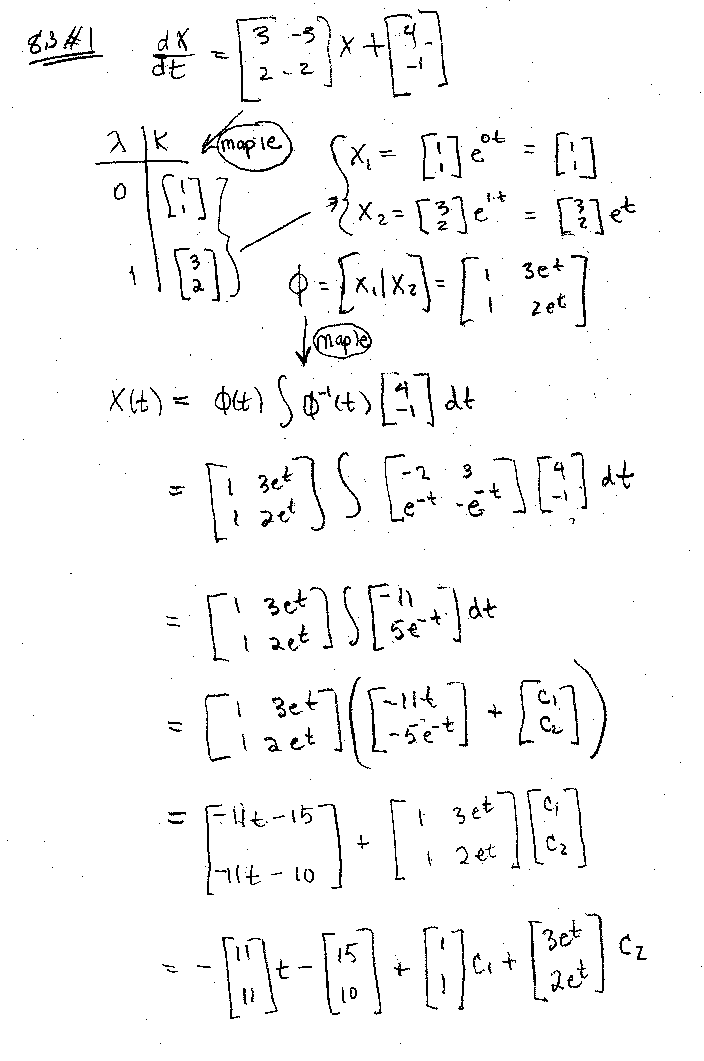 8.3 #1 dX/dt = [3 -3; 2 -2] X + [4; -1]
λ | K maple
0 [1; 1]
1 [3; 2]
X₁ = [1; 1] e^{0t} = [1; 1]
X₂ = [3; 2] e^{1·t} = [3; 2] e^t
φ = [X₁ | X₂] = [1 3e^t; 1 2e^t]
maple
X(t) = φ(t) ∫ φ^{-1}(t) [4; -1] dt
= [1 3e^t; 1 2e^t] ∫ [-2 3; e^{-t} -e^{-t}] [4; -1] dt
= [1 3e^t; 1 2e^t] ∫ [-11; 5e^{-t}] dt
= [1 3e^t; 1 2e^t] ([-11t; -5e^{-t}] + [C₁; C₂])
= [-11t - 15; -11t - 10] + [1 3e^t; 1 2e^t] [C₁; C₂]
= -[11; 11] t - [15; 10] + [1; 1] C₁ + [3e^t; 2e^t] C₂